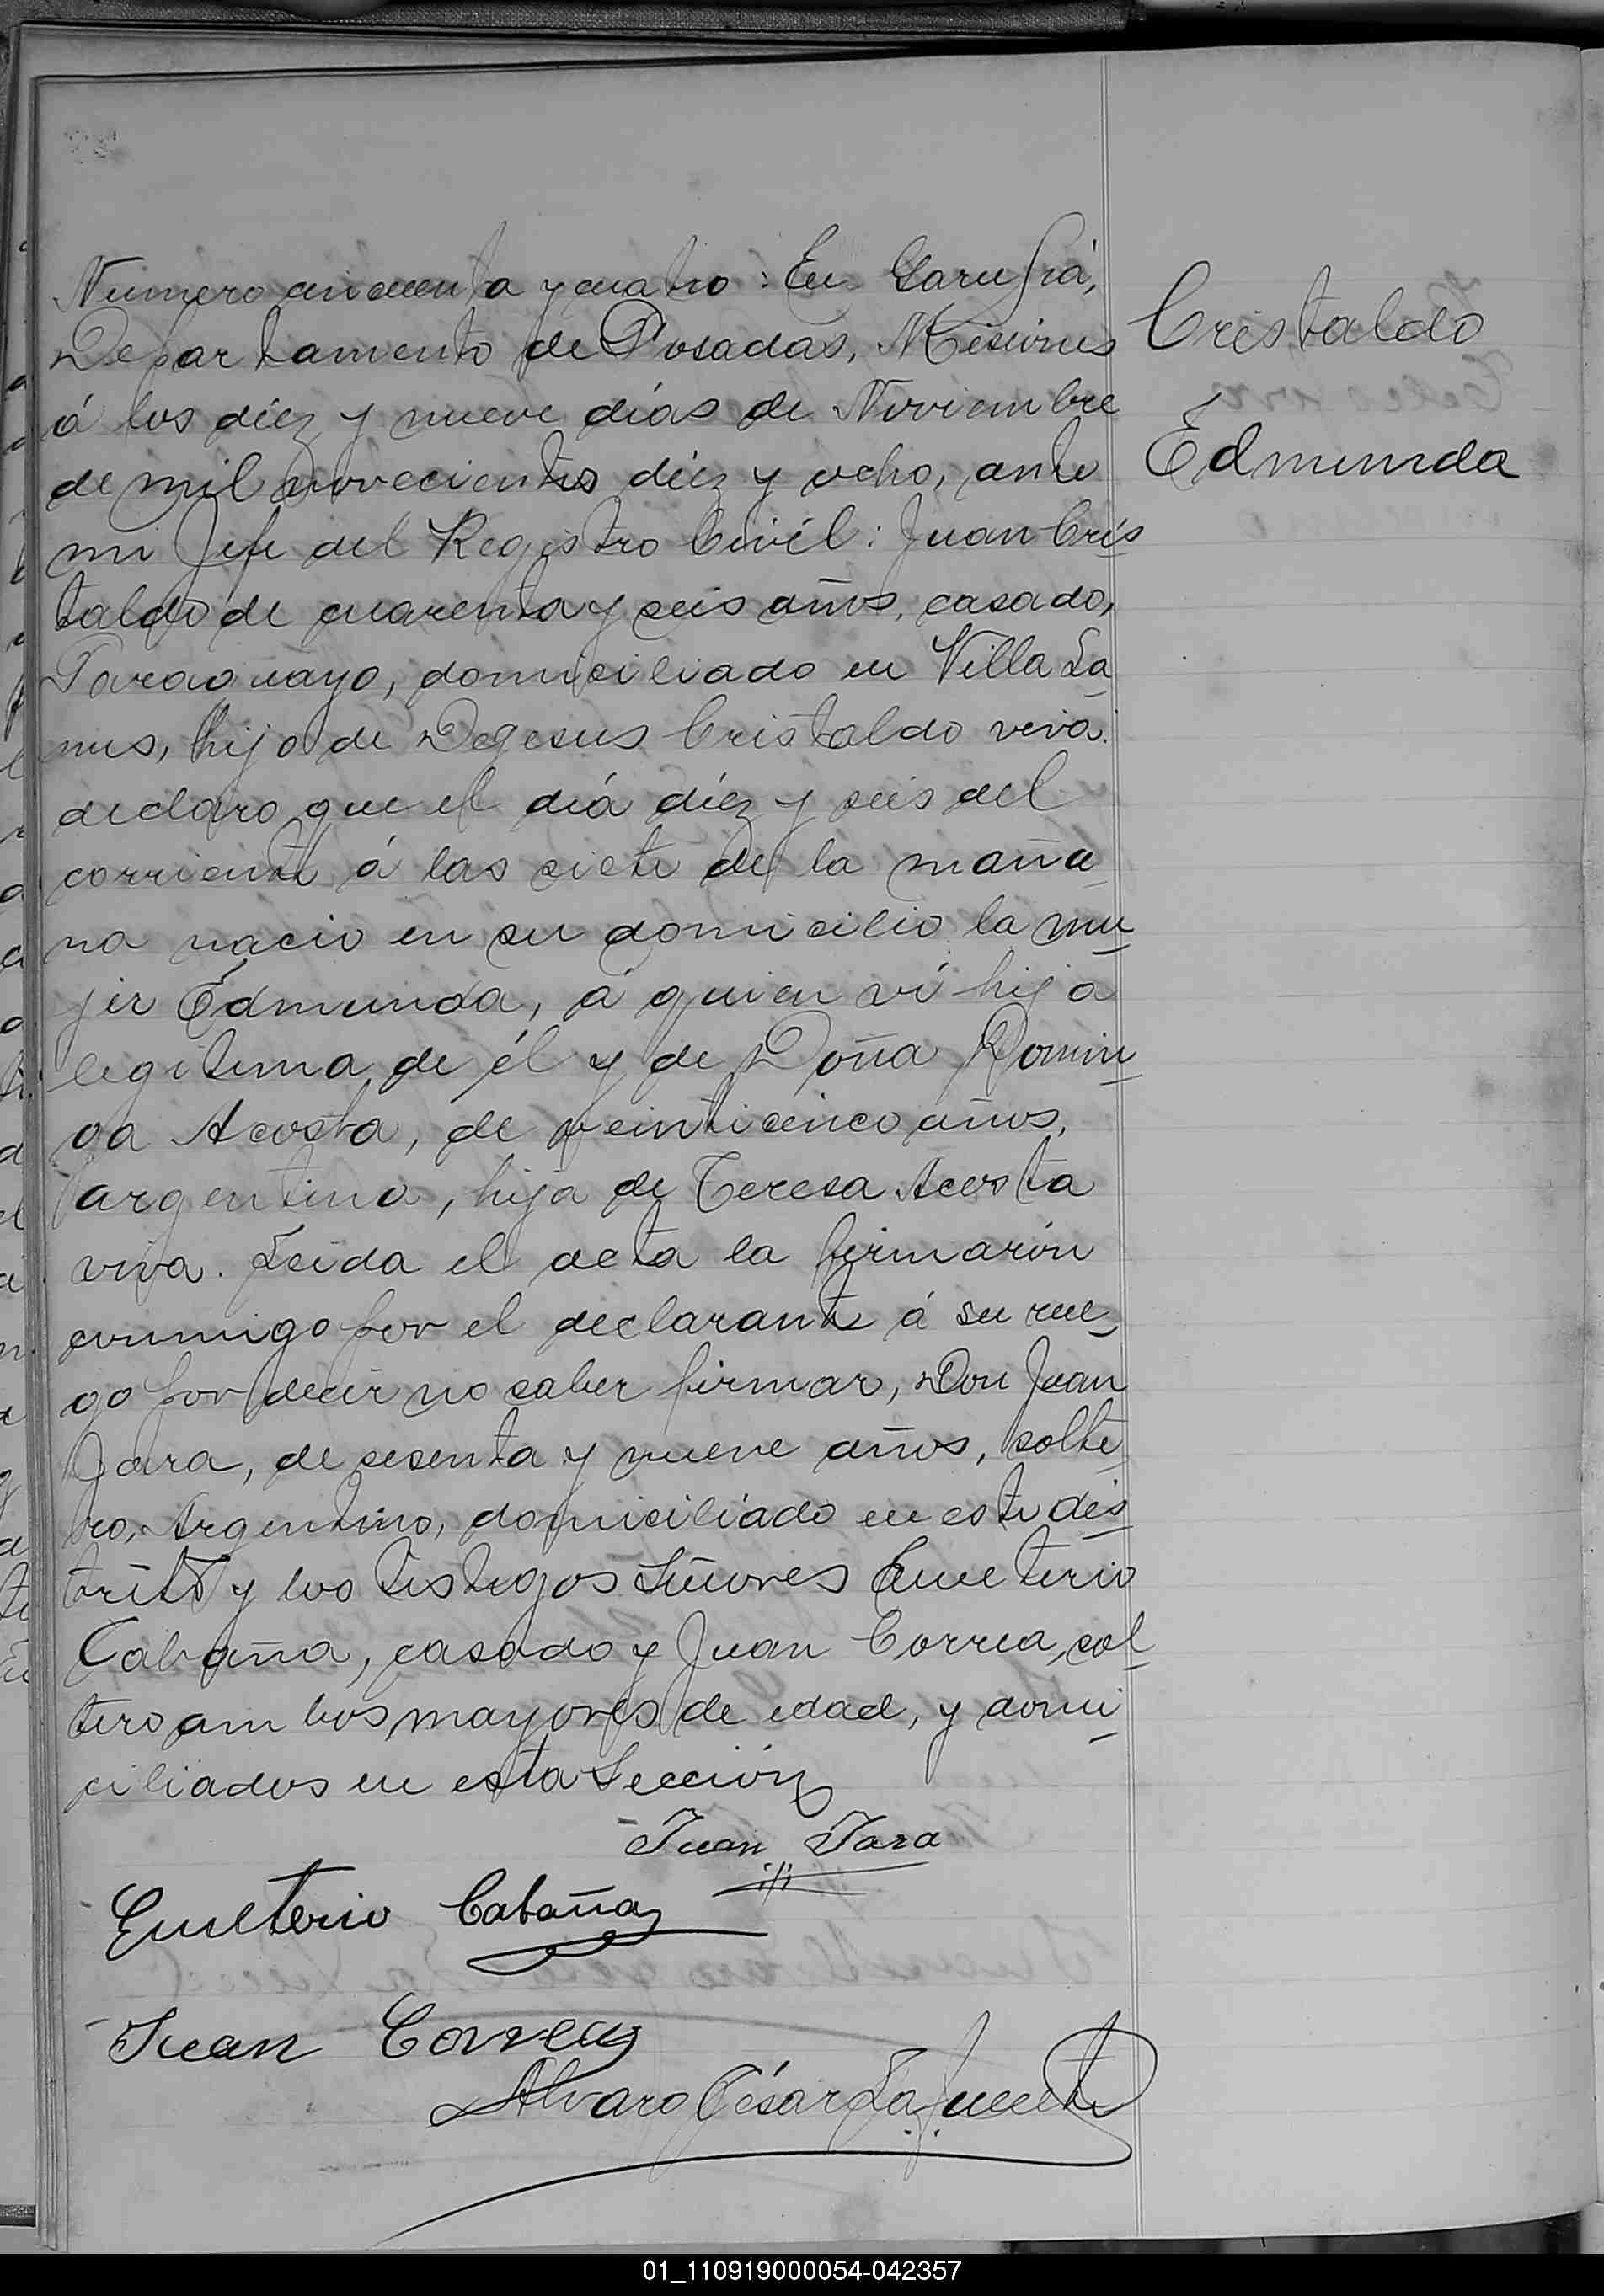 Número cincuenta y cuatro: En Garupá,
Departamento de Posadas, Misiones
á los diéz y nueve días de Noviembre
de mil novecientos diéz y ocho, ante
mi Jefe del Registro Civíl: Juan Cris
taldo de cuarenta y seis años, casado,
Paraguayo, domiciliado en Villa La
nus, hijo de Degesus Cristaldo viva.
declaro que el diá diéz y seis del
corriente á las siete de la maña
na nacio en su domicilio la mu
jer Edmunda, á quien ví hija
legitima de él y de Doña Domin
ga Acosta, de veinticinco años,
argentina, hija de Teresa Acosta
viva. Leida el acta la firmarón
conmigo por el declarante á su rue
go por decir no saber firmar, Don Juan
Jara, de sesenta y nueve años, solte
ro, Argentino, domiciliado en este dis
trito y los testigos Señores Emeterio
Cabaña, casado y Juan Correa, sol
tero ambos mayores de edad, y domi
ciliados en esta Sección
Juan Jara
Emeterio Cabaña
Juan Correa
Alvaro César Lafuente
Cristaldo
Edmunda
01_110919000054-042357